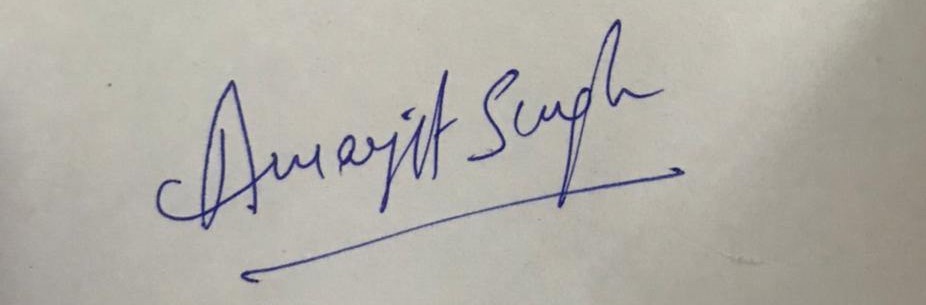 Amarjit Singh